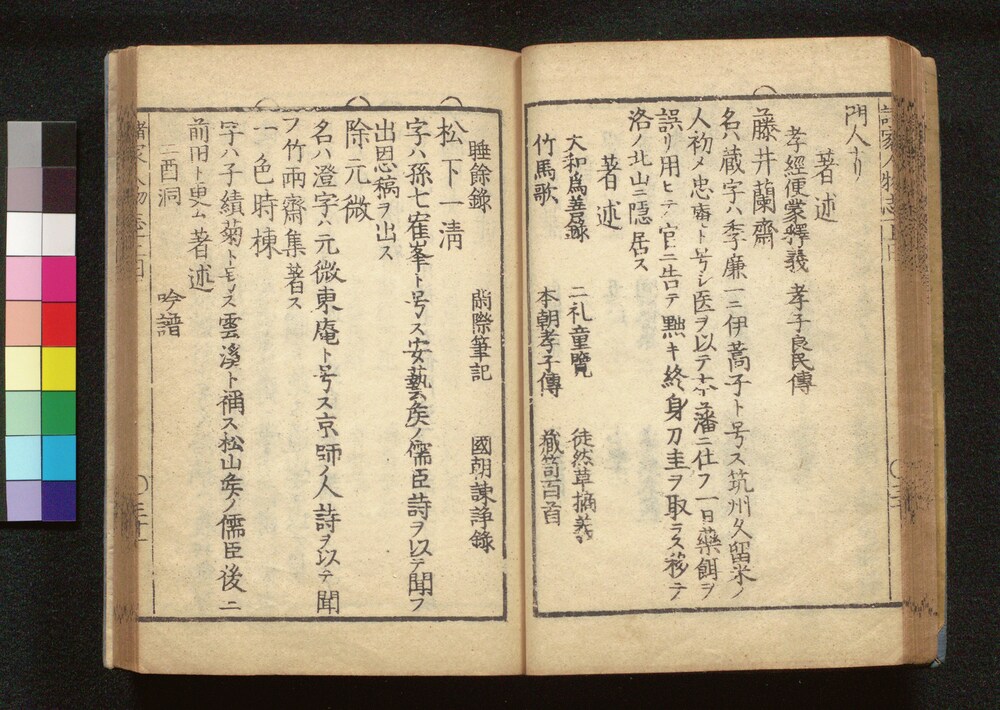 門人ナリ
著述
孝經便蒙釋義 孝子良民傳
藤井蘭齋
名ハ臧字ハ季廉一ニ伊蒿子ト号ス筑州久留米ノ
人初メ忠庵ト号シ医ヲ以テ本藩ニ仕フ一日藥餌ヲ
誤リ用ヒテ官ニ告テ黜キ終身刀圭ヲ取ラス移テ
洛ノ北山ニ隠居ス
著述
大和爲善録 二礼童覽 徒然草摘義
竹馬歌 本朝孝子傳 徹笥百首
睡餘錄 閒際筆記 國朝諫諍錄
松下一清
字ハ孫七寉峯ト号ス安藝矦ノ儒臣詩ヲ以テ聞フ
出思稿ヲ出ス
除元微
名ハ澄字ハ元微東庵ト号ス京師ノ人詩ヲ以テ聞
フ竹雨齋集著ス
一色時棟
字ハ子績菊ト号ス雲溪ト稱ス松山矦ノ儒臣後ニ
前田ト更ム著述
二酉洞 吟譜
諸家人物志